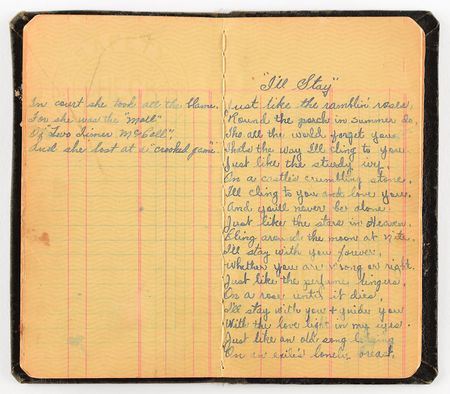 In court she took all the blame.
For she was the "Moll"
Of "Two Timer McCall",
And she lost at a "crooked game".
"I'll Stay"
Just like the ramblin' roses
'Round the porch in summer do,
Tho all the world forget you
That's the way I'll cling to you.
Just like the sturdy ivy,
On a castle's crumbling stone.
I'll cling to you and love you.
And you'll never be alone.
Just like the stars in Heaven.
Cling around the moon at nite.
I'll stay with you forever,
Whether you are wrong or right.
Just like the perfume lingers,
On a rose until it dies,
I'll stay with you + guide you
With the love light in my eyes.
Just like an old song
On an exile's lonely breast,